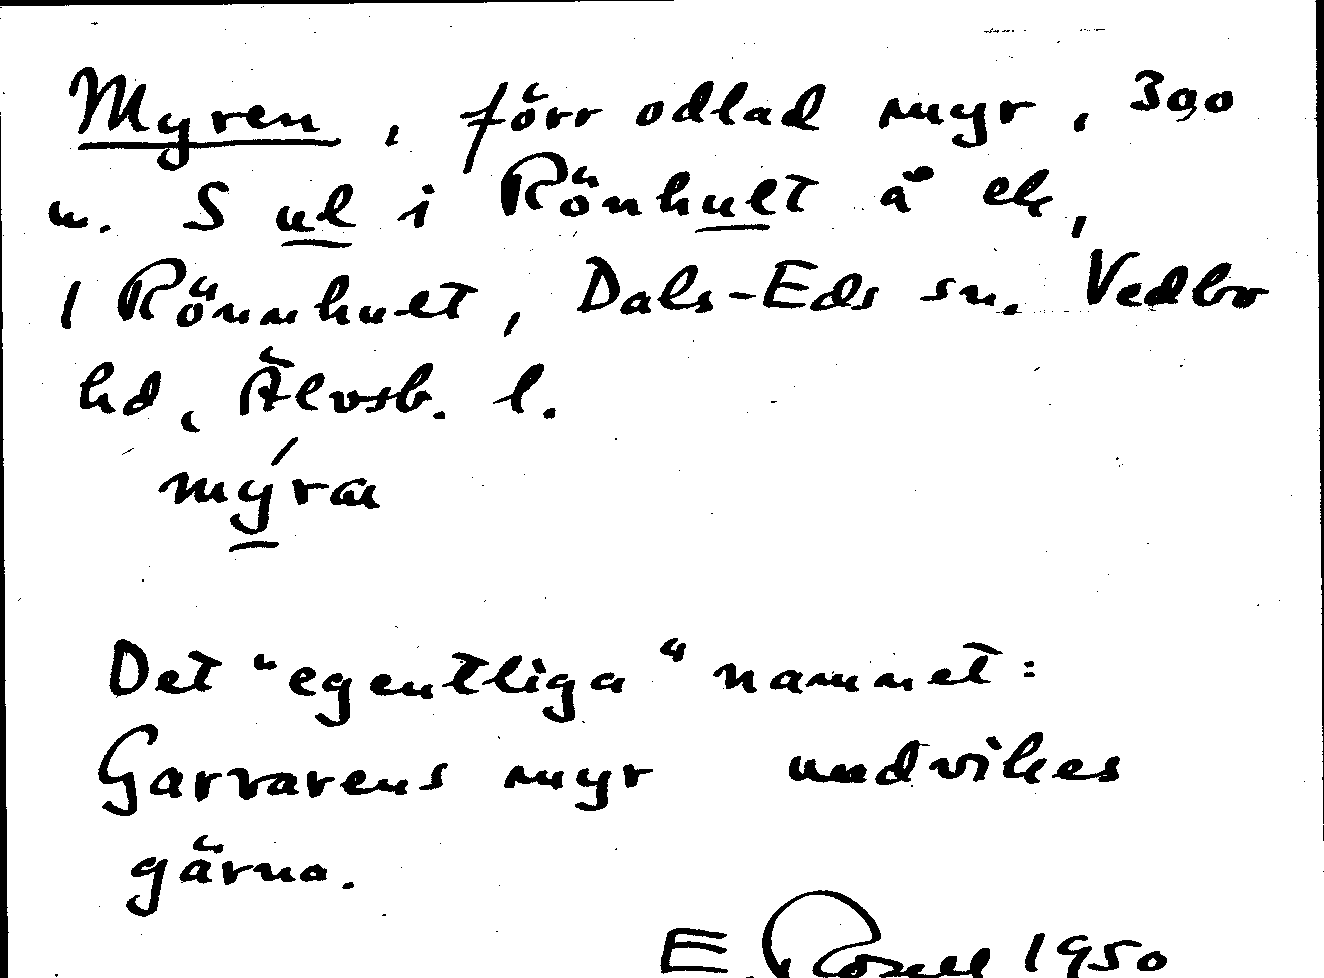 Myren, förr odlad myr, 300
m. S ul i Rönhult å ek,
1 Rönnhult, Dals-Eds sn. Vedbo
hd, Älvsb. l.
mýra
Det "egentliga" namnet:
Garvarens myr undvikes
gärna.
E. Rosell 1950